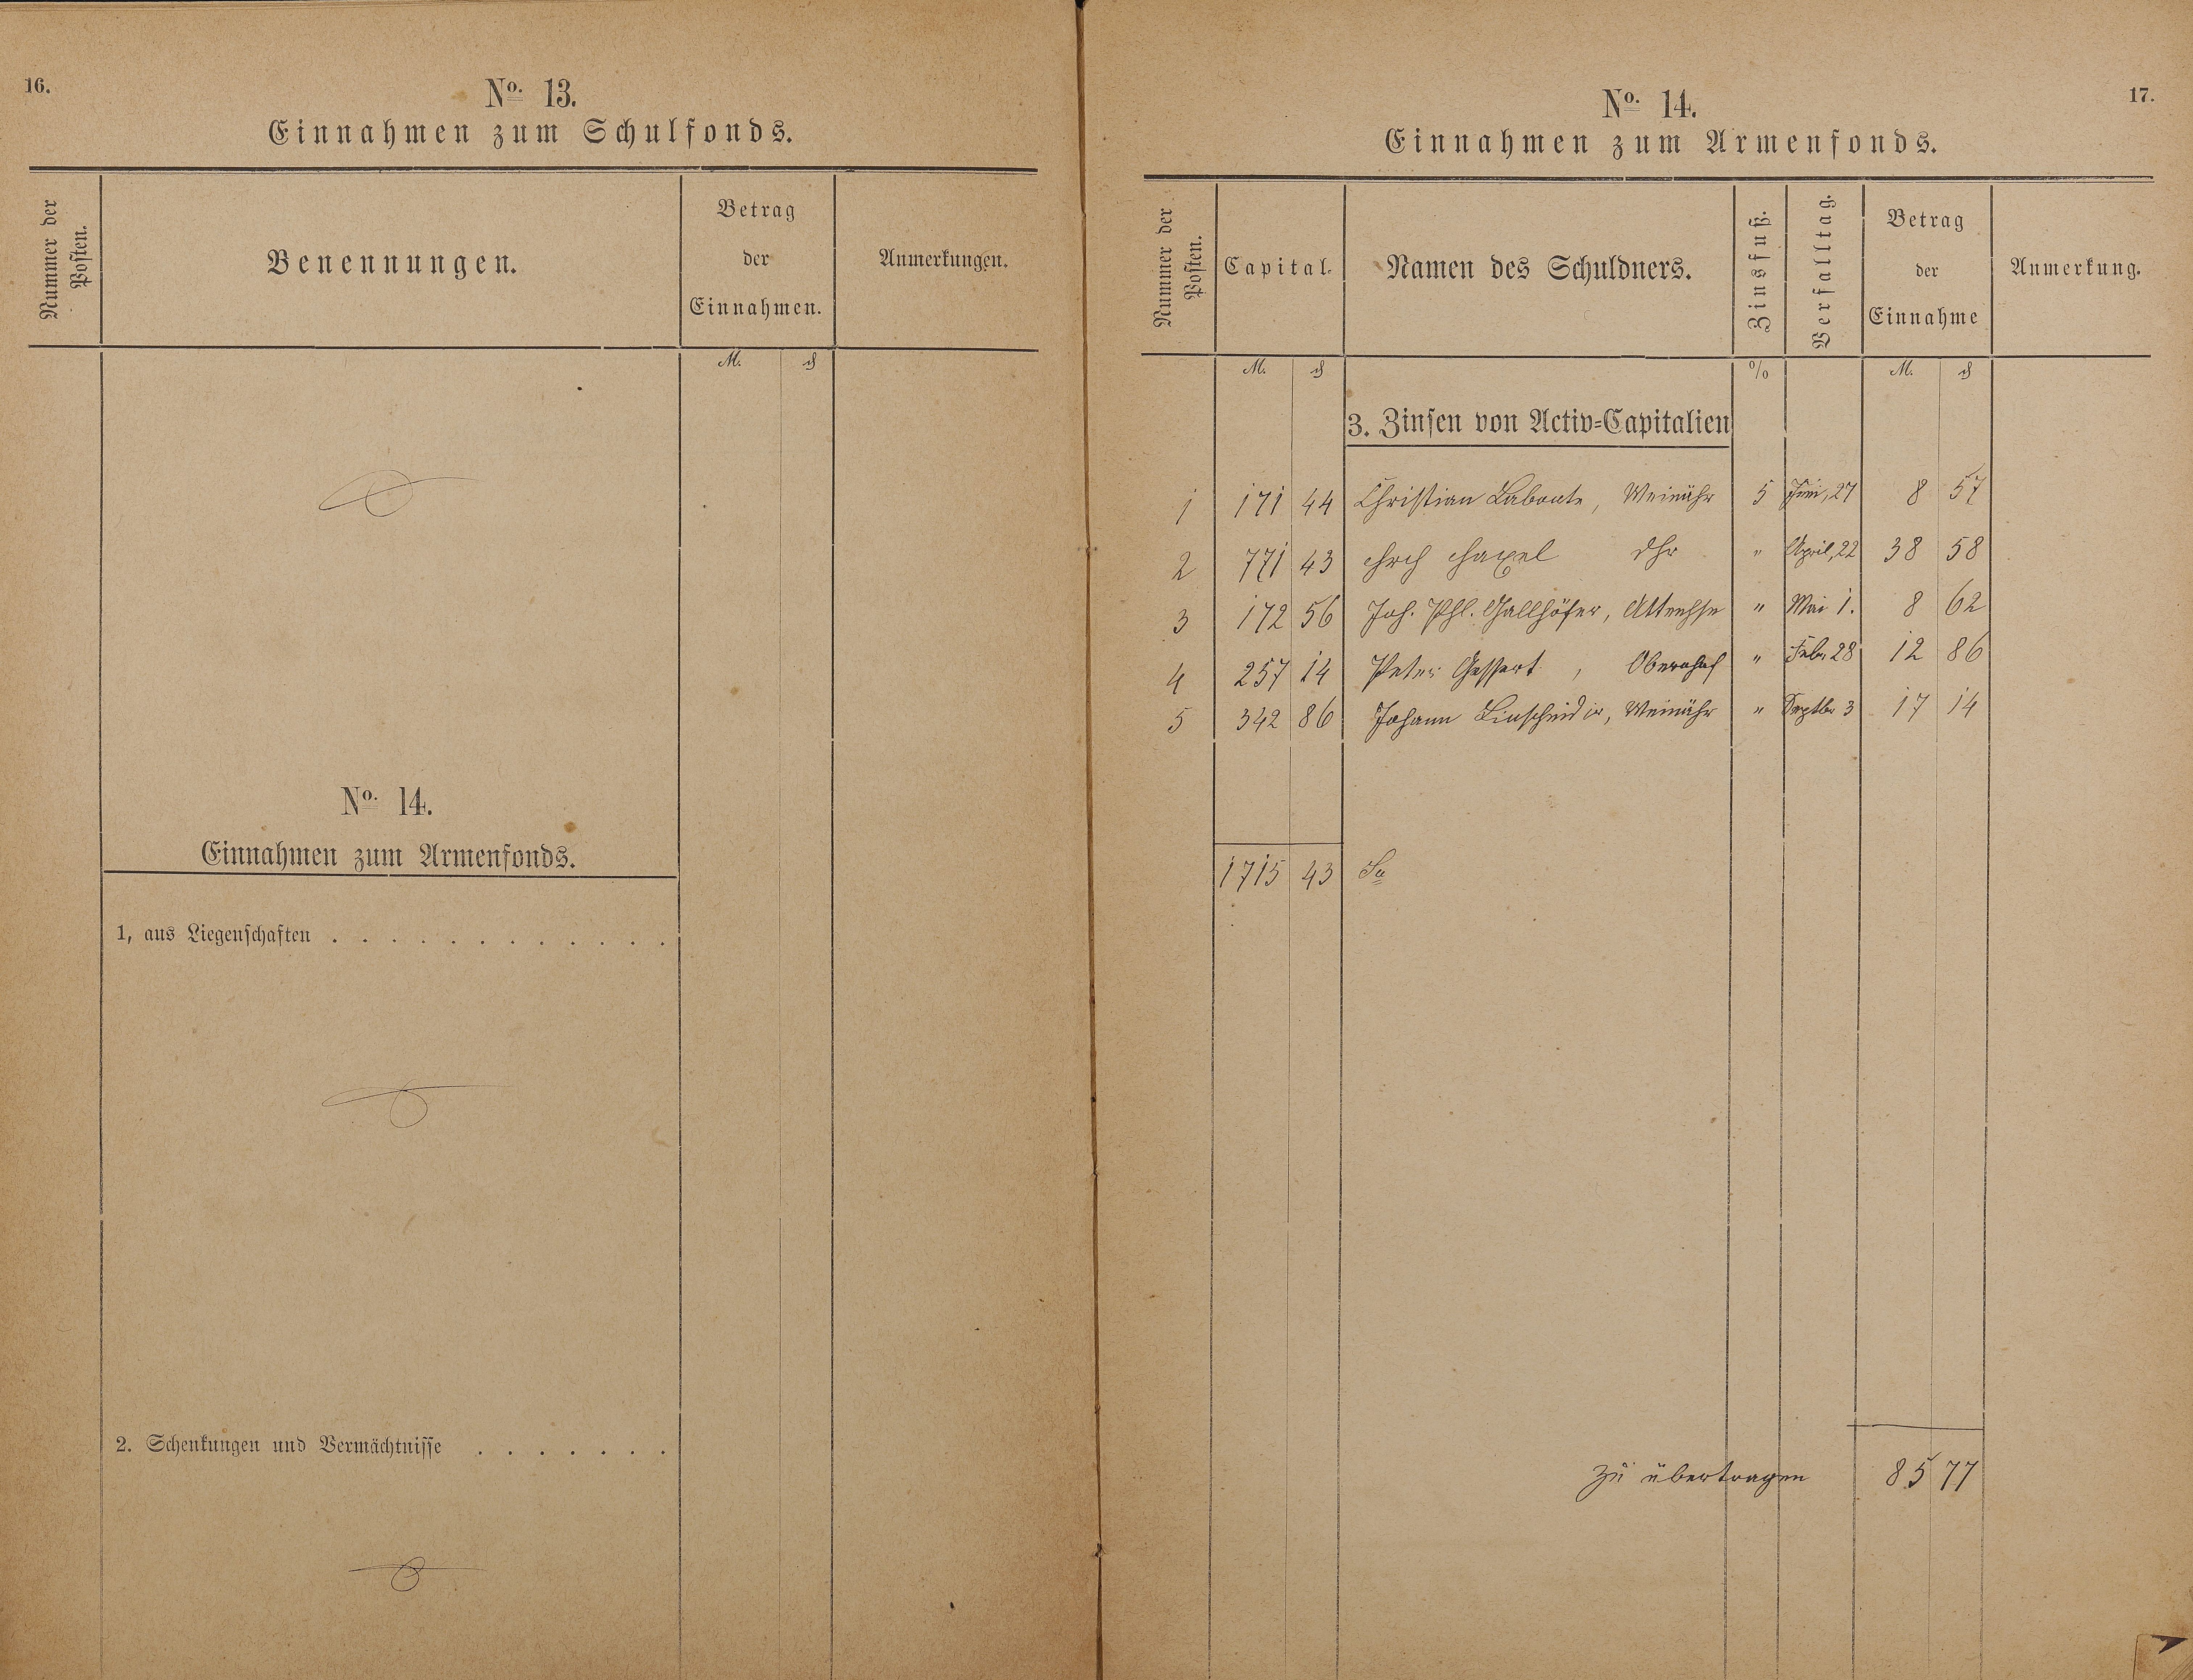 16.
No. 13.
Einnahmen zum Schulfonds.
Nummer der Posten.
Benennungen.
Betrag der Einnahmen.
Anmerkungen.
M. ₰
No. 14.
Einnahmen zum Armenfonds.
1, aus Liegenschaften . . . . . . . . . . . .
2. Schenkungen und Vermächtnisse . . . . . . .
17.
No. 14.
Einnahmen zum Armenfonds.
Nummer der Posten.
Capital.
Namen des Schuldners.
Zinsfuß.
Verfalltag.
Betrag der Einnahme
Anmerkung.
M. ₰ % M. ₰
3. Zinsen von Activ=Capitalien
1 171 44 Christian Labonte, Weinähr 5 Juni, 27 8 57
2 771 43 " April, 22 38 58
3 172 56 Joh. Phl. Gallhöfer, " Mai 1. 8 62
4 257 14 Peter Gessert, Obernhof " Febr 28 12 86
5 342 86 Johann Linscheid, Weinähr " Septbr 3 17 14
1715 43 Sa
zu übertragen 85 77